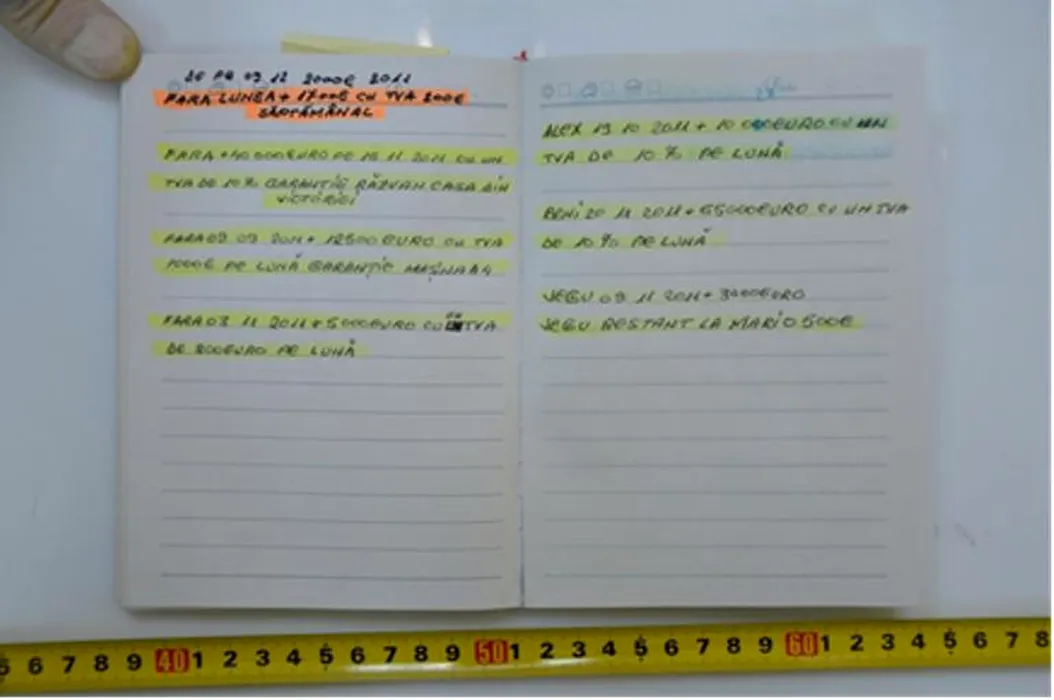 DE PE 09 12 2000€ 2011
PARA LUNEA + 17000€ CU TVA 200€
SĂPTĂMÂNAL
PARA + 40.000 EURO PE 15 11 2011 CU UN
TVA DE 10% GARANTIE RĂZVAN CASA DIN
VICTORIEI
PARA 09 09 2011 + 12500 EURO CU TVA
1000€ PE LUNĂ GARANȚIE MAȘINA A4
PARA 03 11 2011 + 5000 EURO CU TVA
DE 200 EURO PE LUNĂ
ALEX 19 10 2011 + 10 000 EURO CU UN
TVA DE 10 % PE LUNĂ
BENI 20 11 2011 + 55000 EURO CU UN TVA
DE 10 % PE LUNĂ
JEGU 09 11 2011 + 3000 EURO
JEGU RESTANT LA MARIO 500€
5 6 7 8 9 40 1 2 3 4 5 6 7 8 9 50 1 2 3 4 5 6 7 8 9 60 1 2 3 4 5 6 7 8